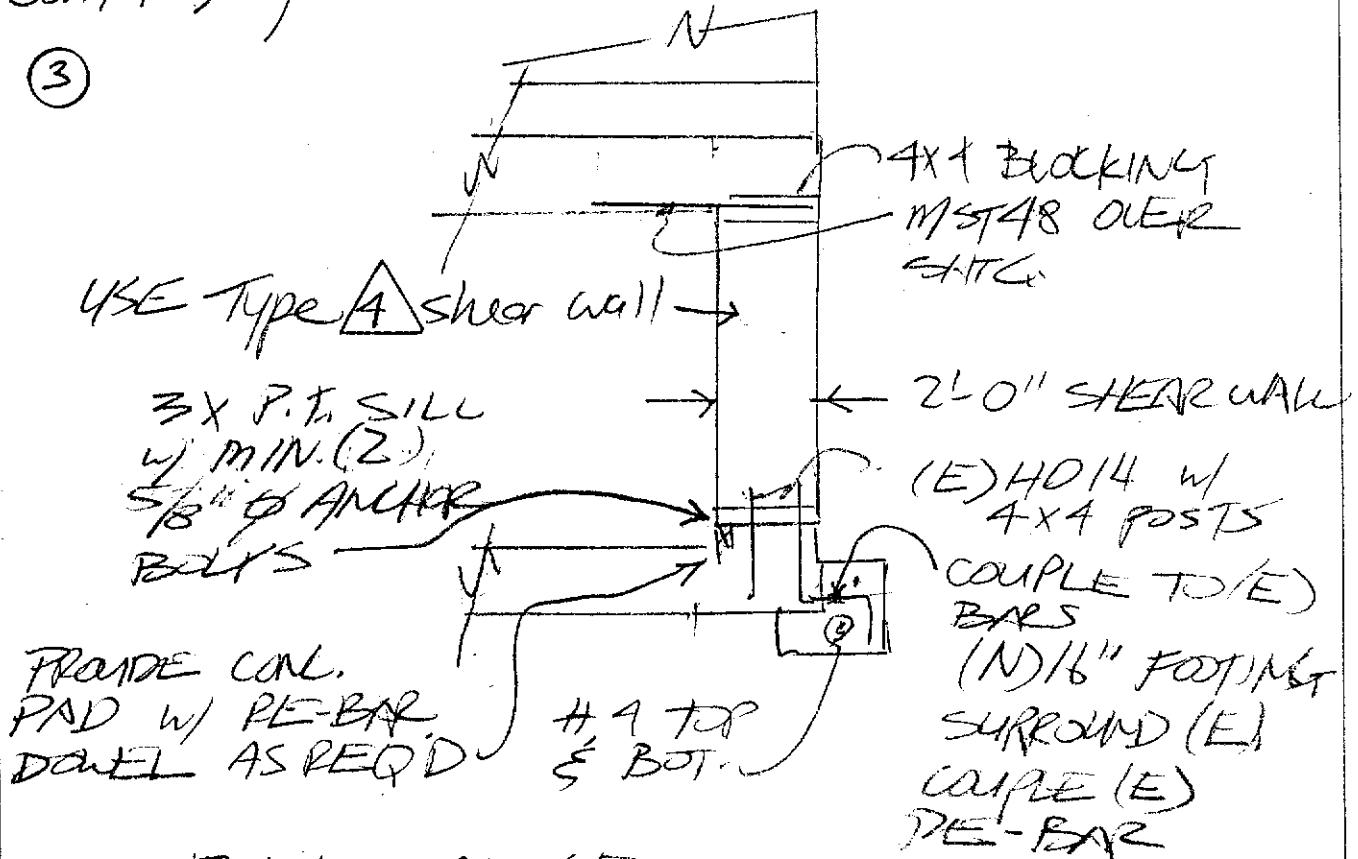 3
N
4X4 BLOCKING
MST48 OVER
SHTG.
USE Type 4 shear wall
3X P.T. SILL
w/ MIN. (2)
5/8" Ø ANCHOR
BOLTS
2'-0" SHEAR WALL
(E) HD14 w/
4X4 POSTS
COUPLE TO (E)
BARS
(N) 16" FOOTING
SURROUND (E)
COUPLE (E)
RE-BAR
PROVIDE CONC.
PAD W/ RE-BAR
DOWEL AS REQ'D
#4 TOP
& BOT.